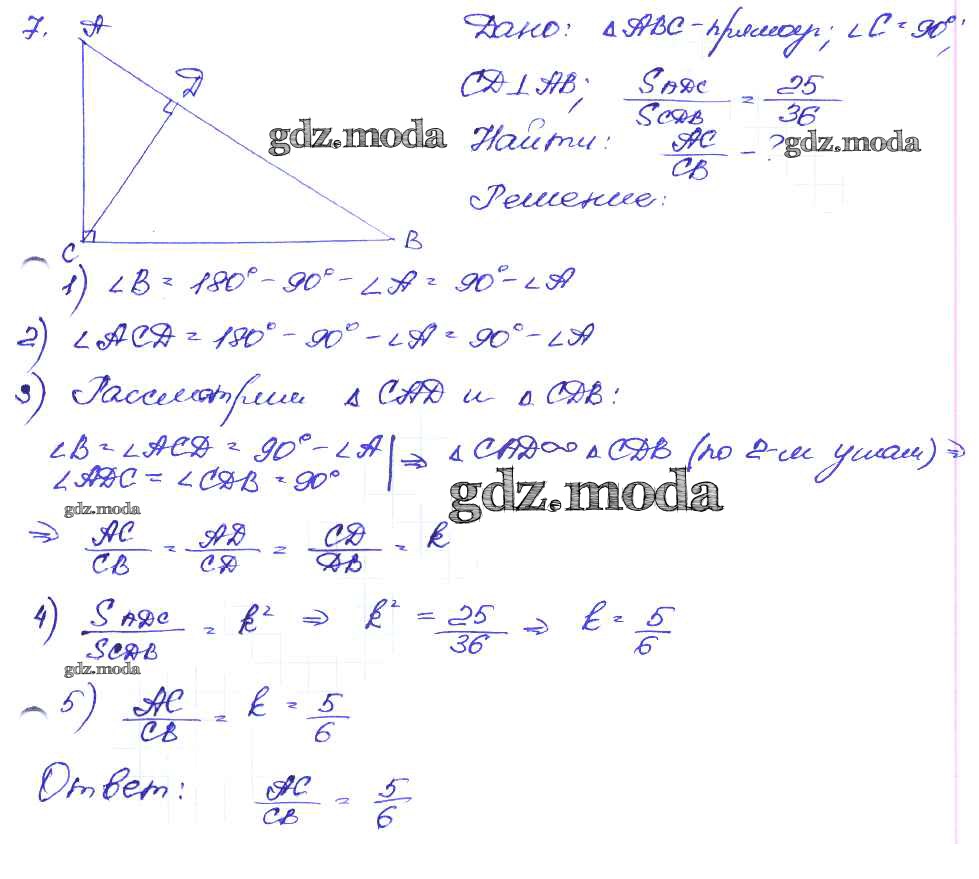 7. A
D
C
B
Дано: △ABC - прямоуг; ∠C = 90°;
CD⊥AB; S ADC / S CDB = 25/36
gdz.moda
Найти: AC/CB - ?
gdz.moda
Решение:
1) ∠B = 180° - 90° - ∠A = 90° - ∠A
2) ∠ACD = 180° - 90° - ∠A = 90° - ∠A
3) Рассмотрим △CAD и △CDB:
∠B = ∠ACD = 90° - ∠A | ⇒ △CAD ∞ △CDB (по 2-м углам) ⇒
∠ADC = ∠CDB = 90°
gdz.moda
gdz.moda
⇒ AC/CB = AD/CD = CD/DB = k
4) S ADC / S CDB = k² ⇒ k² = 25/36 ⇒ k = 5/6
gdz.moda
5) AC/CB = k = 5/6
Ответ: AC/CB = 5/6